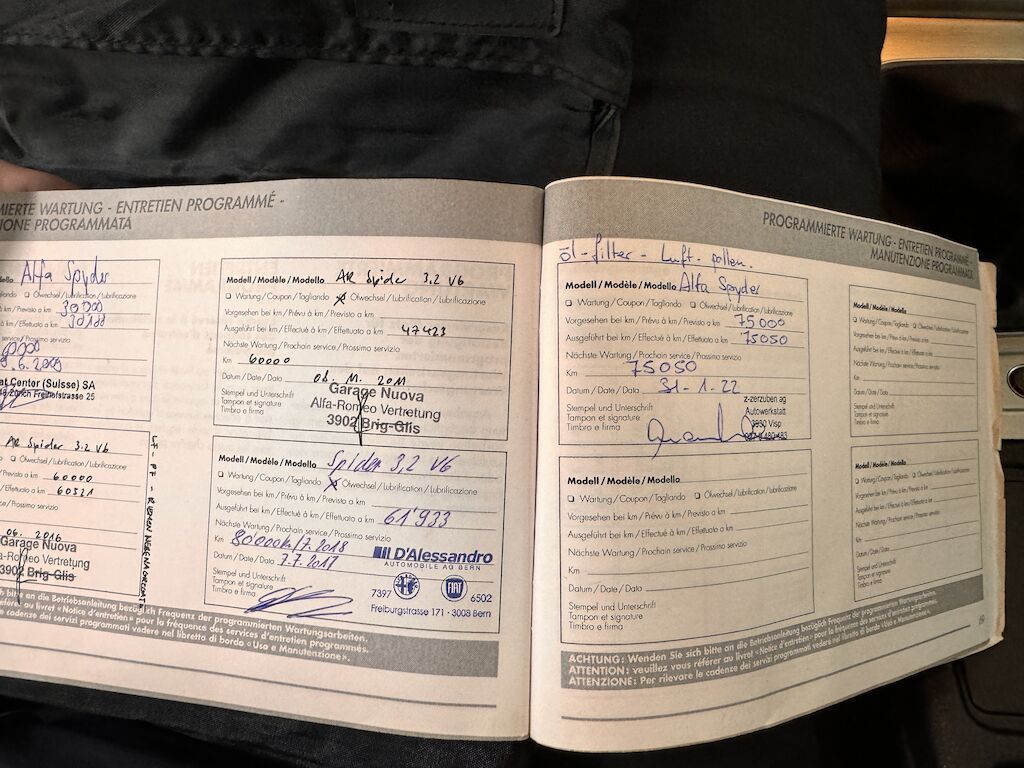 MIERTE WARTUNG - ENTRETIEN PROGRAMMÉ -
IONE PROGRAMMATA
Alfa Spyder
Ölwechsel/Lubrification/Lubrificazione
à km / Previsto a km 30000
à km / Effettuato a km 30188
service/Prossimo servizio
.6.2009
at Center (Suisse) SA
Zürich Freihofstrasse 25
Modell/Modèle/Modello AR Spider 3.2 V6
Wartung/Coupon/Tagliando Ölwechsel/Lubrification/Lubrificazione
Vorgesehen bei km/Prévu à km/Previsto a km
Ausgeführt bei km/Effectué à km/Effettuato a km 47423
Nächste Wartung/Prochain service/Prossimo servizio
Km 60000
Datum/Date/Data 08. 11. 2011
Stempel und Unterschrift
Tampon et signature
Timbro e firma
Garage Nuova
Alfa-Romeo Vertretung
3902 Brig-Glis
AR Spider 3.2 V6
Ölwechsel/Lubrification/Lubrificazione
Previsto a km 60000
Effettuato a km 60521
service/Prossimo servizio
06. 2016
Garage Nuova
fa-Romeo Vertretung
3902 Brig-Glis
Modell/Modèle/Modello Spider 3,2 V6
Wartung/Coupon/Tagliando Ölwechsel/Lubrification/Lubrificazione
Vorgesehen bei km/Prévu à km/Previsto a km
Ausgeführt bei km/Effectué à km/Effettuato a km 61'933
Nächste Wartung/Prochain service/Prossimo servizio
Km 80000km/7.2018
Datum/Date/Data 7.7.2017
Stempel und Unterschrift
Tampon et signature
Timbro e firma
D'Alessandro
AUTOMOBILE AG BERN
7397 FIAT 6502
Freiburgstrasse 171 · 3008 Bern
h bitte an die Betriebsanleitung bezüglich Frequenz der programmierten Wartungsarbeiten.
référer au livret «Notice d'entretien» pour la fréquence des services d'entretien programmés.
e cadenze dei servizi programmati vedere nel libretto di bordo «Uso e Manutenzione».
PROGRAMMIERTE WARTUNG - ENTRETIEN PROGRAMMÉ
MANUTENZIONE PROGRAMMATA
öl - filter - Luft - pollen.
Modell/Modèle/Modello Alfa Spyder
Wartung/Coupon/Tagliando Ölwechsel/Lubrification/Lubrificazione
Vorgesehen bei km/Prévu à km/Previsto a km 75000
Ausgeführt bei km/Effectué à km/Effettuato a km 75050
Nächste Wartung/Prochain service/Prossimo servizio
Km 75050
Datum/Date/Data 31-1-22
Stempel und Unterschrift
Tampon et signature
Timbro e firma
z-zerzuben ag
Autowerkstatt
3930 Visp
Modell/Modèle/Modello
Wartung/Coupon/Tagliando Ölwechsel/Lubrification/Lubrificazione
Vorgesehen bei km/Prévu à km/Previsto a km
Ausgeführt bei km/Effectué à km/Effettuato a km
Nächste Wartung/Prochain service/Prossimo servizio
Km
Datum/Date/Data
Stempel und Unterschrift
Tampon et signature
Timbro e firma
Modell/Modèle/Modello
Wartung/Coupon/Tagliando Ölwechsel/Lubrification/Lubrificazione
Vorgesehen bei km/Prévu à km/Previsto a km
Ausgeführt bei km/Effectué à km/Effettuato a km
Nächste Wartung/Prochain service/Prossimo servizio
Km
Datum/Date/Data
Stempel und Unterschrift
Tampon et signature
Timbro e firma
Modell/Modèle/Modello
Wartung/Coupon/Tagliando Ölwechsel/Lubrification/Lubrificazione
Vorgesehen bei km/Prévu à km/Previsto a km
Ausgeführt bei km/Effectué à km/Effettuato a km
Nächste Wartung/Prochain service/Prossimo servizio
Km
Datum/Date/Data
Stempel und Unterschrift
Tampon et signature
Timbro e firma
ACHTUNG: Wenden Sie sich bitte an die Betriebsanleitung bezüglich Frequenz der programmierten Wartungsarbeiten.
ATTENTION: veuillez vous référer au livret «Notice d'entretien» pour la fréquence des services d'entretien programmés.
ATTENZIONE: Per rilevare le cadenze dei servizi programmati vedere nel libretto di bordo «Uso e Manutenzione».
69